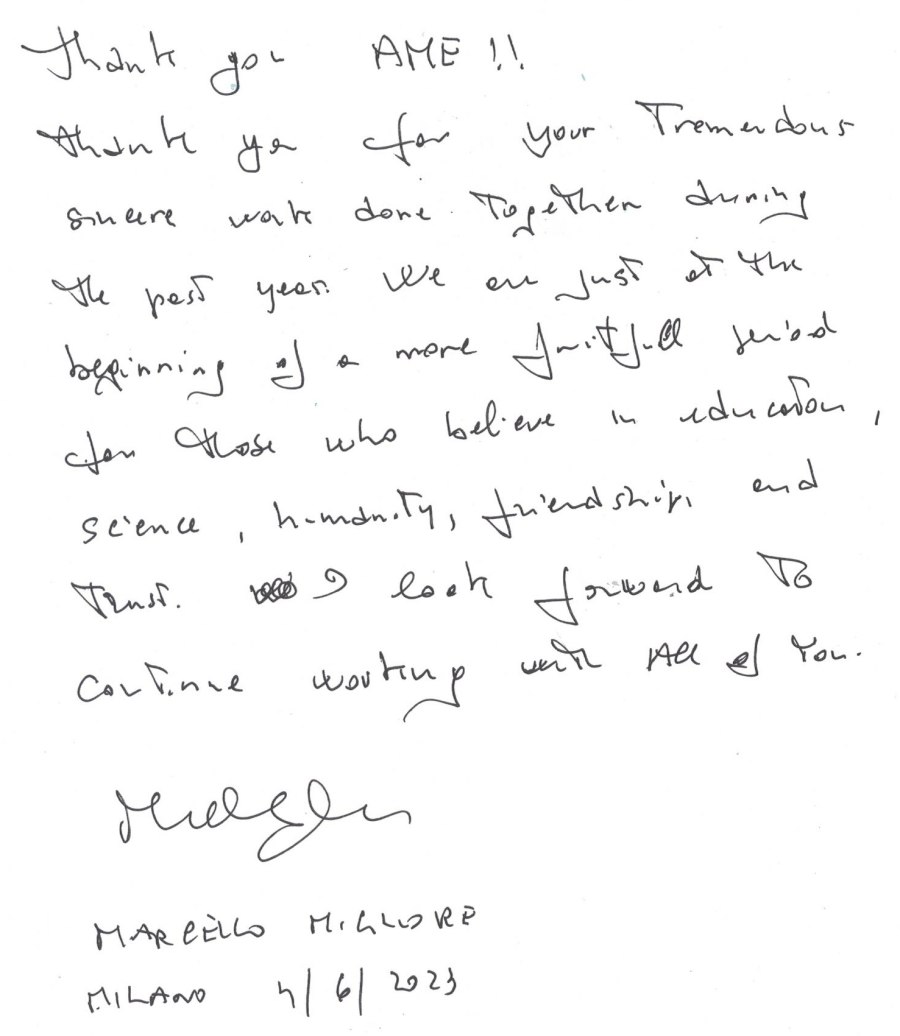 Thank you AME !!
Thank you for your Tremendous
sincere work done Together during
the past year. We are just at the
beginning of a more fruitfull period
for those who believe in education,
science, humanity, friendship, and
Trust. I look forward To
continue working with All of You.
MARCELLO MIGLIORE
MILANO 4/6/2023